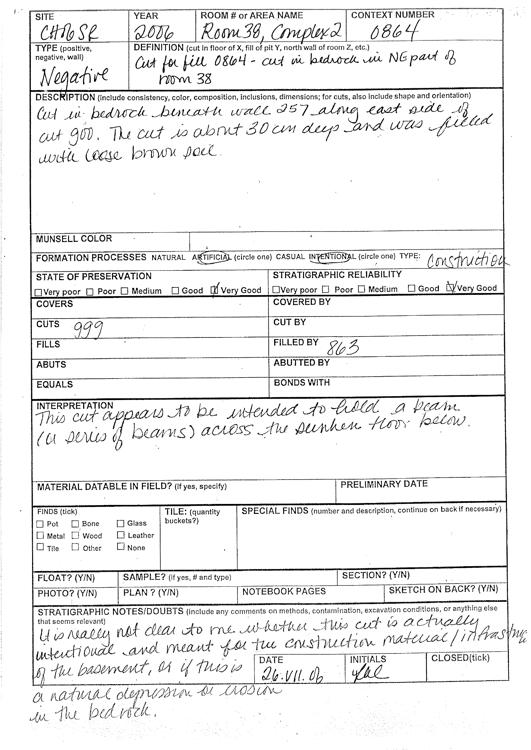 SITE YEAR ROOM # or AREA NAME CONTEXT NUMBER
CH06SR 2006 Room 38, Complex 2 0864
TYPE (positive, negative, wall) DEFINITION (cut in floor of X, fill of pit Y, north wall of room Z, etc.)
Negative Cut for fill 0864 - cut in bedrock in NE part of
room 38
DESCRIPTION (include consistency, color, composition, inclusions, dimensions; for cuts, also include shape and orientation)
Cut in bedrock beneath wall 257 along east side of
cut 900. The cut is about 30 cm deep and was filled
with loose brown soil.
MUNSELL COLOR
FORMATION PROCESSES NATURAL ARTIFICIAL (circle one) CASUAL INTENTIONAL (circle one) TYPE: Construction
STATE OF PRESERVATION STRATIGRAPHIC RELIABILITY
Very poor Poor Medium Good Very Good Very poor Poor Medium Good Very Good
COVERS COVERED BY
CUTS 999 CUT BY
FILLS FILLED BY 863
ABUTS ABUTTED BY
EQUALS BONDS WITH
INTERPRETATION
This cut appears to be intended to hold a beam
(or series of beams) across the sunken floor below.
MATERIAL DATABLE IN FIELD? (If yes, specify) PRELIMINARY DATE
FINDS (tick) TILE: (quantity buckets?) SPECIAL FINDS (number and description, continue on back if necessary)
Pot Bone Glass
Metal Wood Leather
Tile Other None
FLOAT? (Y/N) SAMPLE? (if yes, # and type) SECTION? (Y/N)
PHOTO? (Y/N) PLAN ? (Y/N) NOTEBOOK PAGES SKETCH ON BACK? (Y/N)
STRATIGRAPHIC NOTES/DOUBTS (include any comments on methods, contamination, excavation conditions, or anything else
that seems relevant)
It is really not clear to me whether this cut is actually
intentional and meant for the construction material/
of the basement, or if this is
DATE INITIALS CLOSED(tick)
26.VII.06
a natural depression or erosion
in the bedrock.